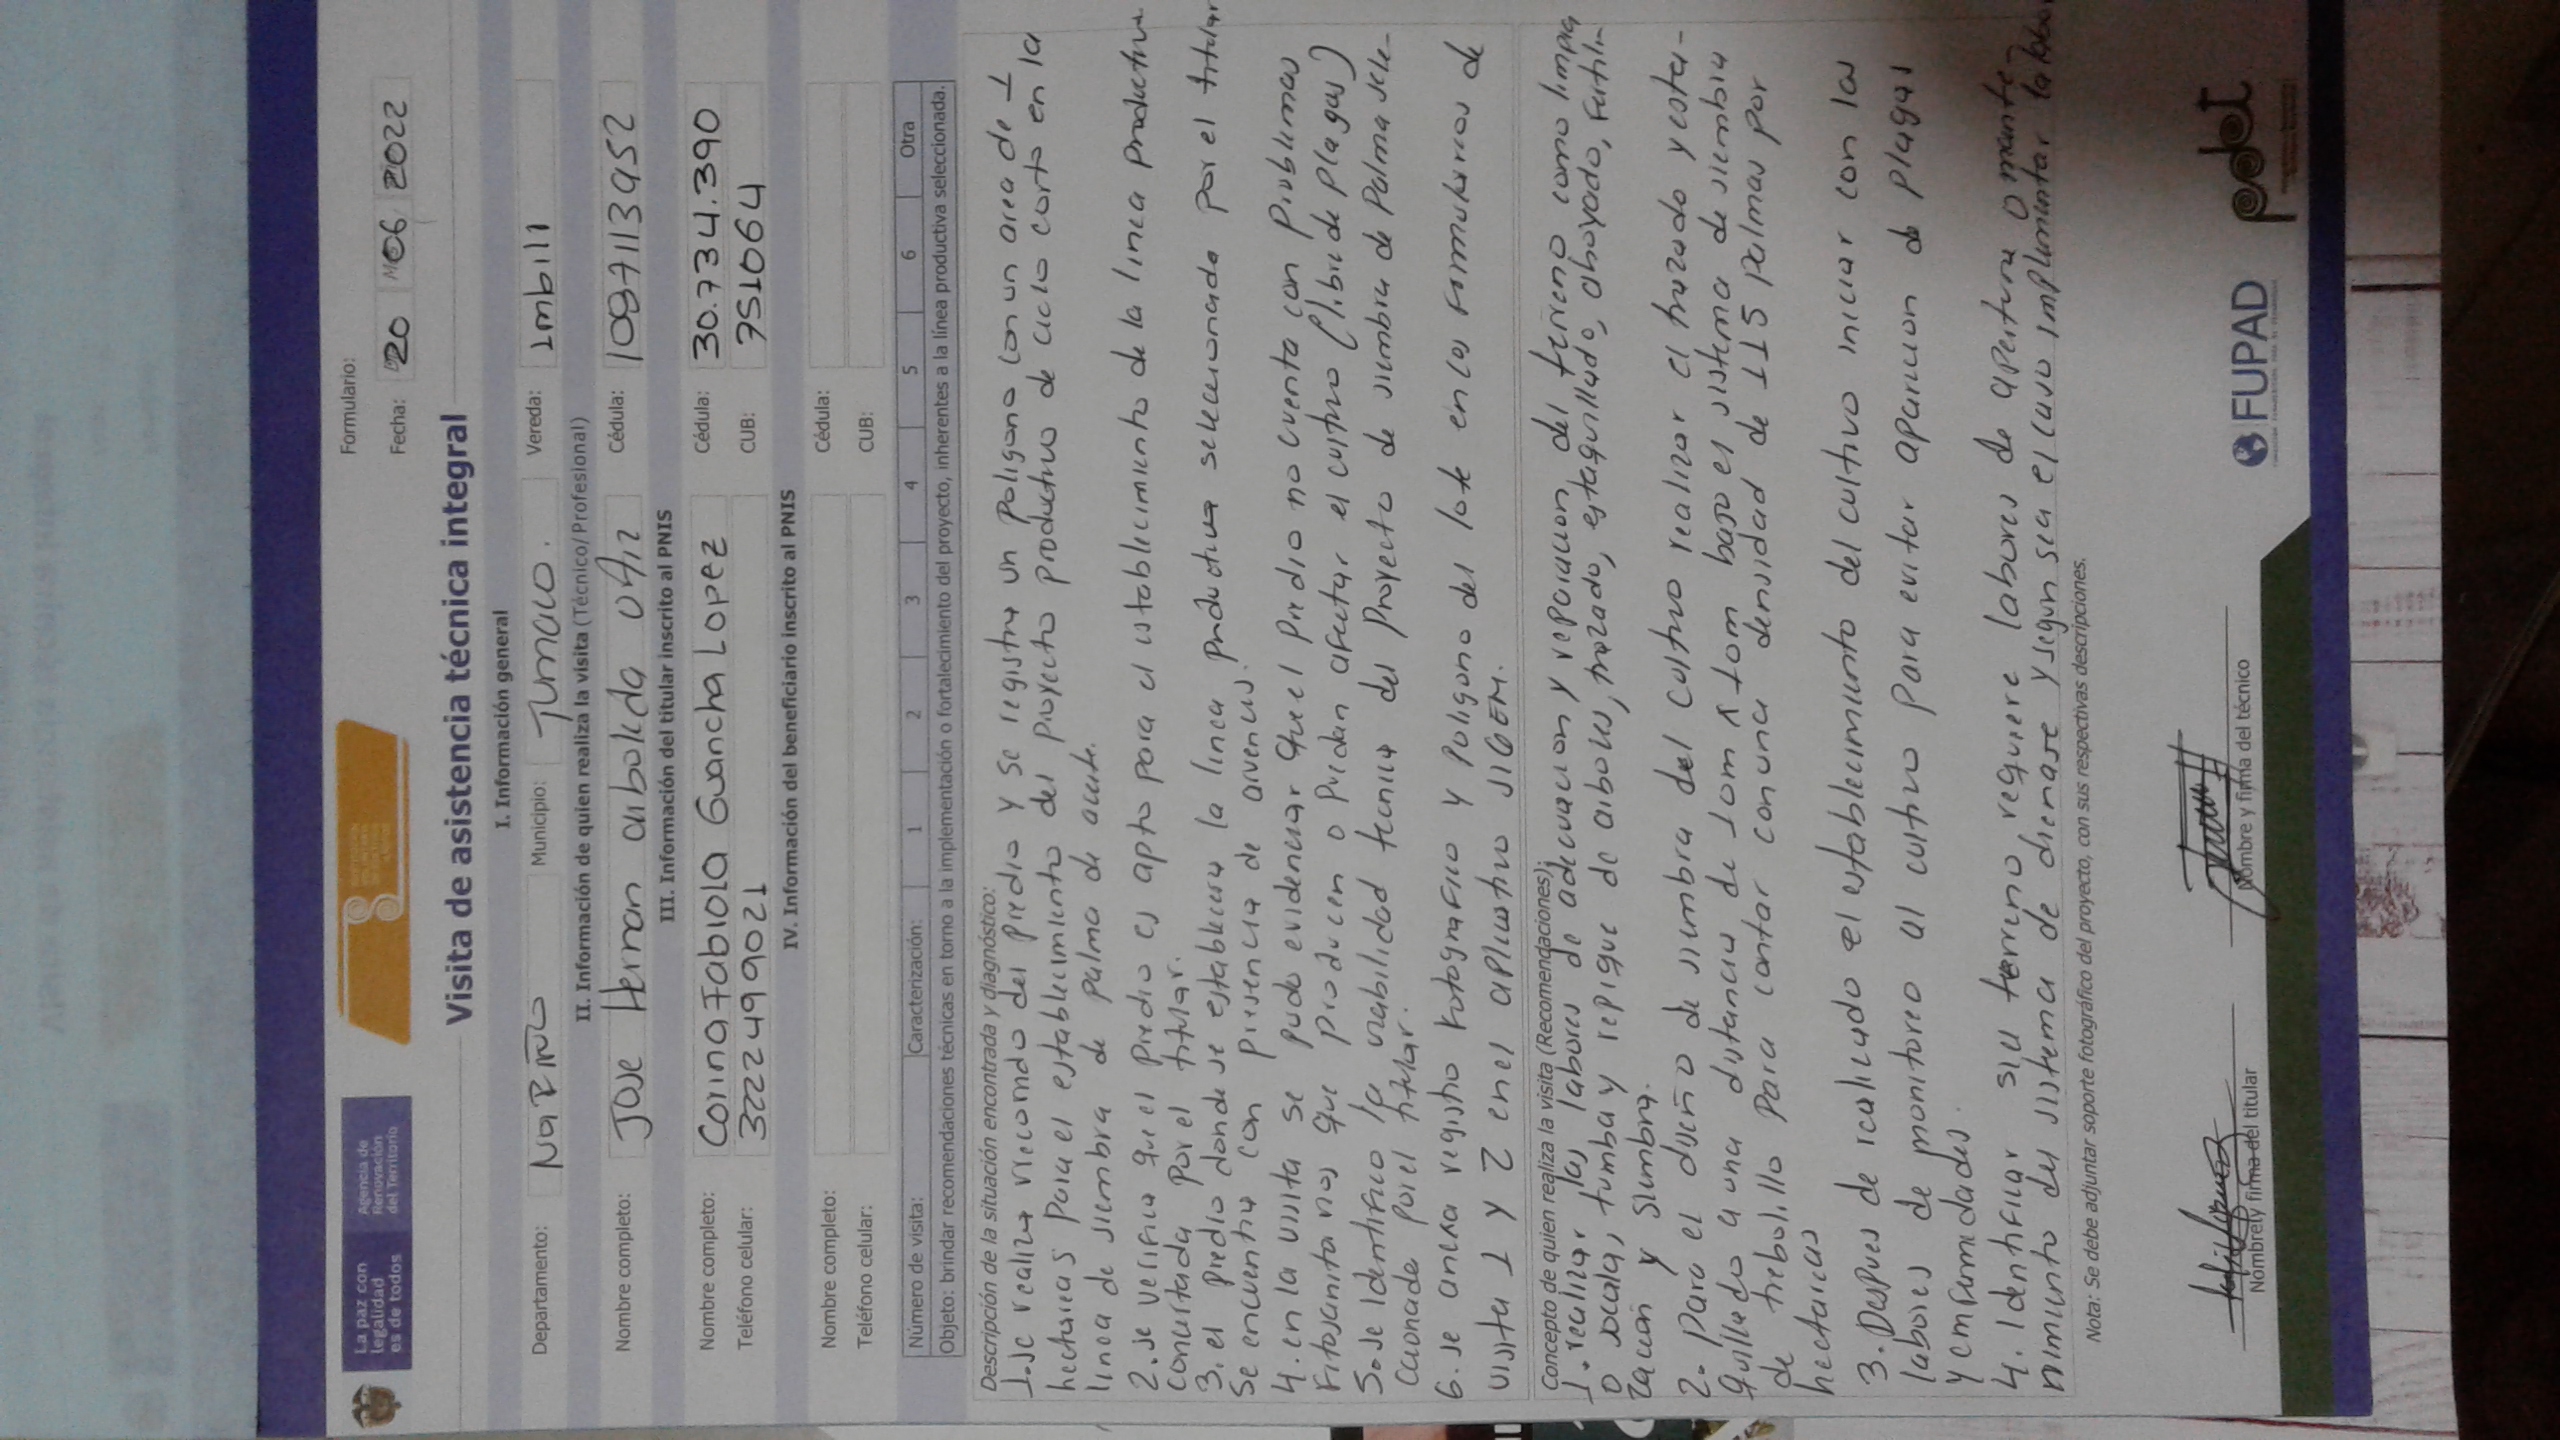 La paz con
legalidad
es de todos
Agencia de
Renovación
del Territorio
Formulario:
Fecha: 20 06 2022
Visita de asistencia técnica integral
I. Información general
Departamento: NaRIÑO Municipio: Tumaco. Vereda: Imbili
II. Información de quien realiza la visita (Técnico/ Profesional)
Nombre completo: Jose Hernan arboleda ortiz Cédula: 1087113952
III. Información del titular inscrito al PNIS
Nombre completo: Corina Fabiola Guancha Lopez Cédula: 30.734.390
Teléfono celular: 3222499021 CUB: 751064
IV. Información del beneficiario inscrito al PNIS
Nombre completo: Cédula:
Teléfono celular: CUB:
Número de visita: Caracterización: 1 2 3 4 5 6 Otra
Objeto: brindar recomendaciones técnicas en torno a la implementación o fortalecimiento del proyecto, inherentes a la línea productiva seleccionada.
Descripción de la situación encontrada y diagnóstico:
1. se realiza recorrido del predio y se registra un poligono con un area de 1
hectareas para el establecimiento del proyecto productivo de ciclo corto en la
linea de siembra de palma de aceite.
2. se verifica que el predio es apto para el establecimiento de la linea productiva
concertada por el titular.
3. el predio donde se establecera la linea productiva seleccionada por el titular
se encuentra con presencia de arvenses.
4. en la visita se pudo evidenciar que el predio no cuenta con problemas
fitosanitarios que producen o puedan afectar el cultivo (libre de plagas)
5. se identifico la viabilidad tecnica del proyecto de siembra de palma sele-
ccionada por el titular.
6. se anexa registro fotografico y poligono del lote en los formularios de
visita 1 y 2 en el aplicativo SIGEM.
Concepto de quien realiza la visita (Recomendaciones):
1. realizar las labores de adecuacion y reparacion del terreno como limpia
o socala, tumba y repique de arboles, trazado, estaquillado, ahoyado, Fertili
zacion y siembra.
2. para el diseño de siembra del cultivo realizar el trazado y esta-
quillado a una distancia de 10m x 10m bajo el sistema de siembra
de tresbolillo para contar con una densidad de 115 palmas por
hectareas
3. Despues de realizado el establecimiento del cultivo iniciar con las
labores de monitoreo al cultivo para evitar aparicion de plagas
y enfermedades.
4. identificar si el terreno requiere labores de apertura o mante-
nimiento del sistema de drenaje y segun sea el caso implementar la labor
Nota: Se debe adjuntar soporte fotográfico del proyecto, con sus respectivas descripciones.
Nombre y firma del titular
Nombre y firma del técnico
FUPAD
pdet